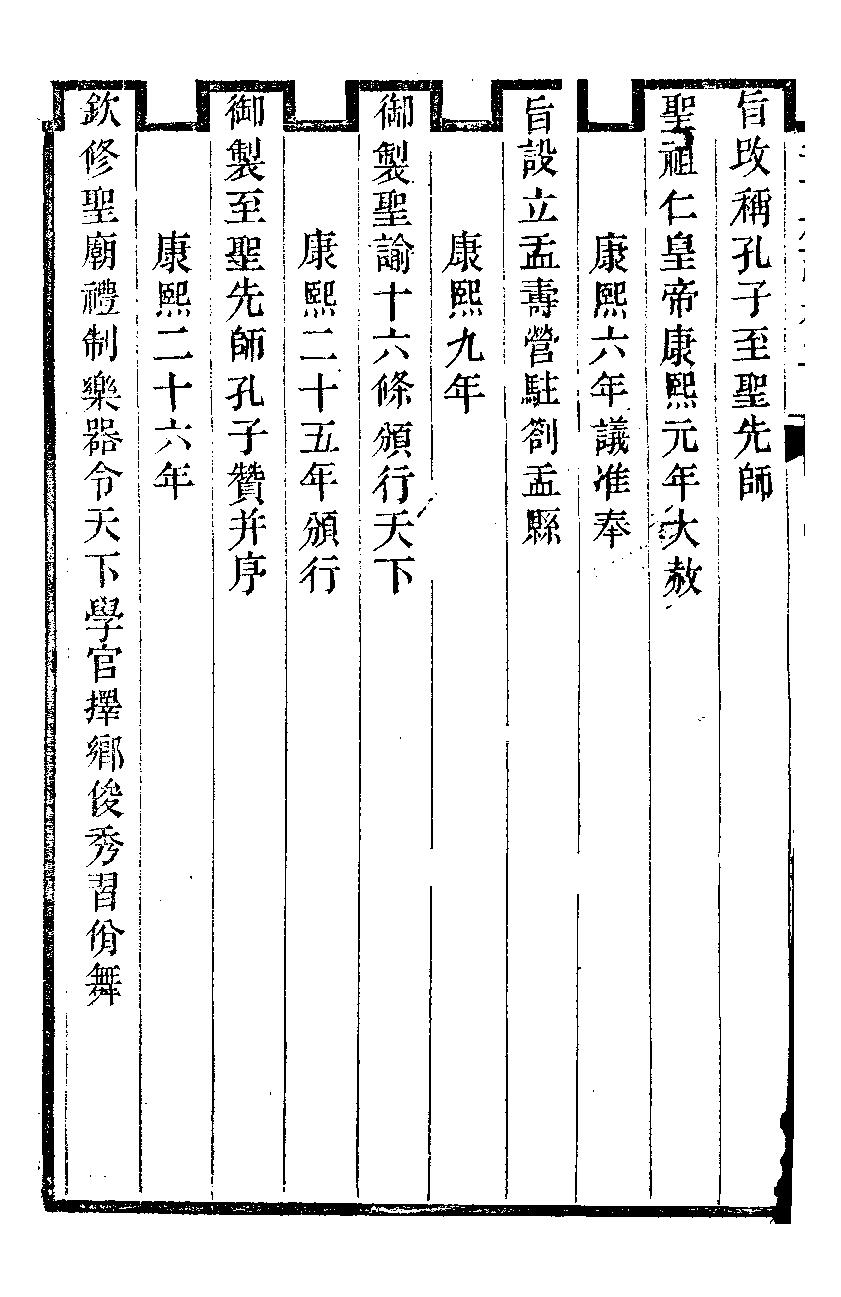 旨改稱孔子至聖先師
聖祖仁皇帝康熙元年大赦
康熙六年議准奉
旨設立孟壽營駐劄孟縣
康熙九年
御製聖諭十六條頒行天下
康熙二十五年頒行
御製至聖先師孔子贊并序
康熙二十六年
欽修聖廟禮制樂器令天下學官擇鄉俊秀習佾舞